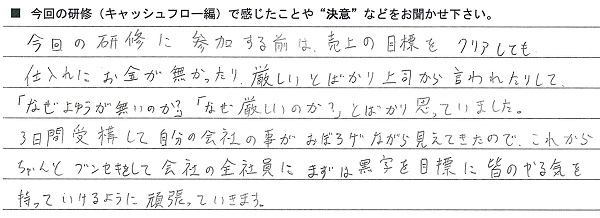 ■ 今回の研修（キャッシュフロー編）で感じたことや“決意”などをお聞かせ下さい。
今回の研修に参加する前は、売上の目標をクリアしても
仕入れにお金が無かったり、厳しいとばかり上司から言われたりして、
「なぜよゆうが無いのか?」「なぜ厳しいのか?」とばかり思っていました。
3日間受構して自分の会社の事がおぼろげながら見えてきたので、これから
ちゃんとブンセキをして会社の全社員にまずは黒字を目標に皆のやる気を
持っていけるように頑張っていきます。